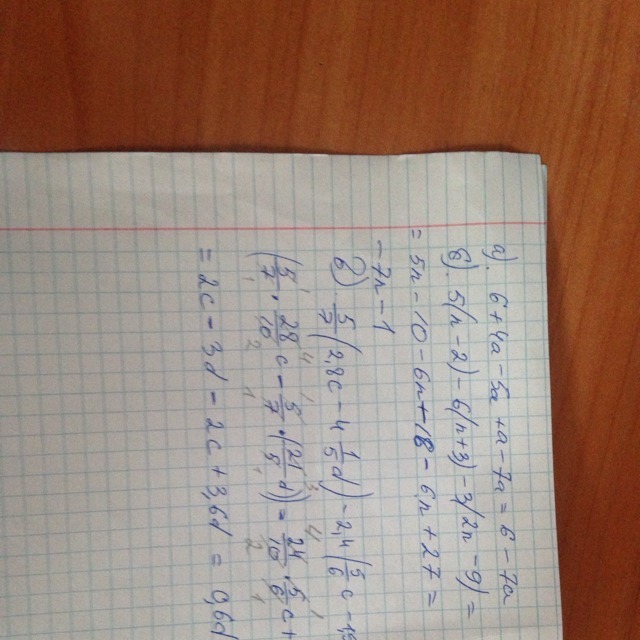 а). 6 + 4a - 5a + a - 7a = 6 - 7a
б). 5(n - 2) - 6(n + 3) - 3(2n - 9) =
= 5n - 10 - 6n + 18 - 6n + 27 =
- 7n - 1
в) 5/7 (2,8c - 4 1/5 d) - 2,4 (5/6 c -
(5/7 · 28/10 c - 5/7 · (21/5 d)) = 24/10 · 5/6 c +
= 2c - 3d - 2c + 3,6d = 0,6d